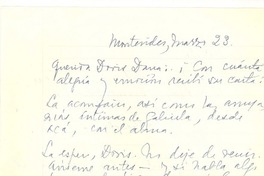 Montevideo, Marzo 23.
Querida Doris Dana: ¡Con cuánta
alegría y emoción recibí su carta!
La acompaño, así como las amigas
más íntimas de Gabriela, desde
acá, con el alma.
La espero, Doris. No deje de venir.
antes — y si habla